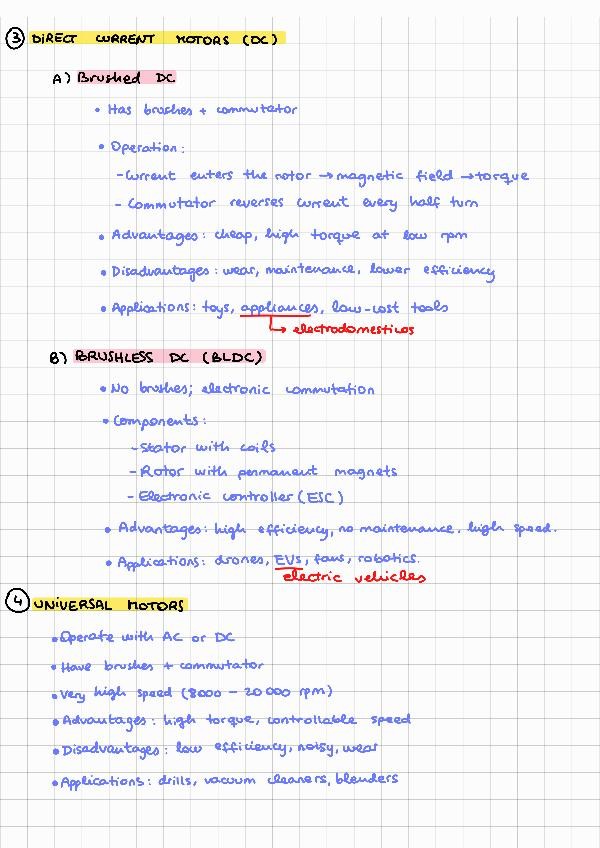 ③ DIRECT CURRENT MOTORS (DC)
A) Brushed DC
• Has brushes + commutator
• Operation:
- Current enters the rotor → magnetic field → torque
- Commutator reverses current every half turn
• Advantages: cheap, high torque at low rpm
• Disadvantages: wear, maintenance, lower efficiency
• Applications: toys, appliances, low-cost tools
↳ electrodomesticos
B) BRUSHLESS DC (BLDC)
• No brushes; electronic commutation
• Components:
- Stator with coils
- Rotor with permanent magnets
- Electronic controller (ESC)
• Advantages: high efficiency, no maintenance, high speed.
• Applications: drones, EVs, fans, robotics.
electric vehicles
④ UNIVERSAL MOTORS
• Operate with AC or DC
• Have brushes + commutator
• Very high speed (8000 – 20 000 rpm)
• Advantages: high torque, controllable speed
• Disadvantages: low efficiency, noisy, wear
• Applications: drills, vacuum cleaners, blenders